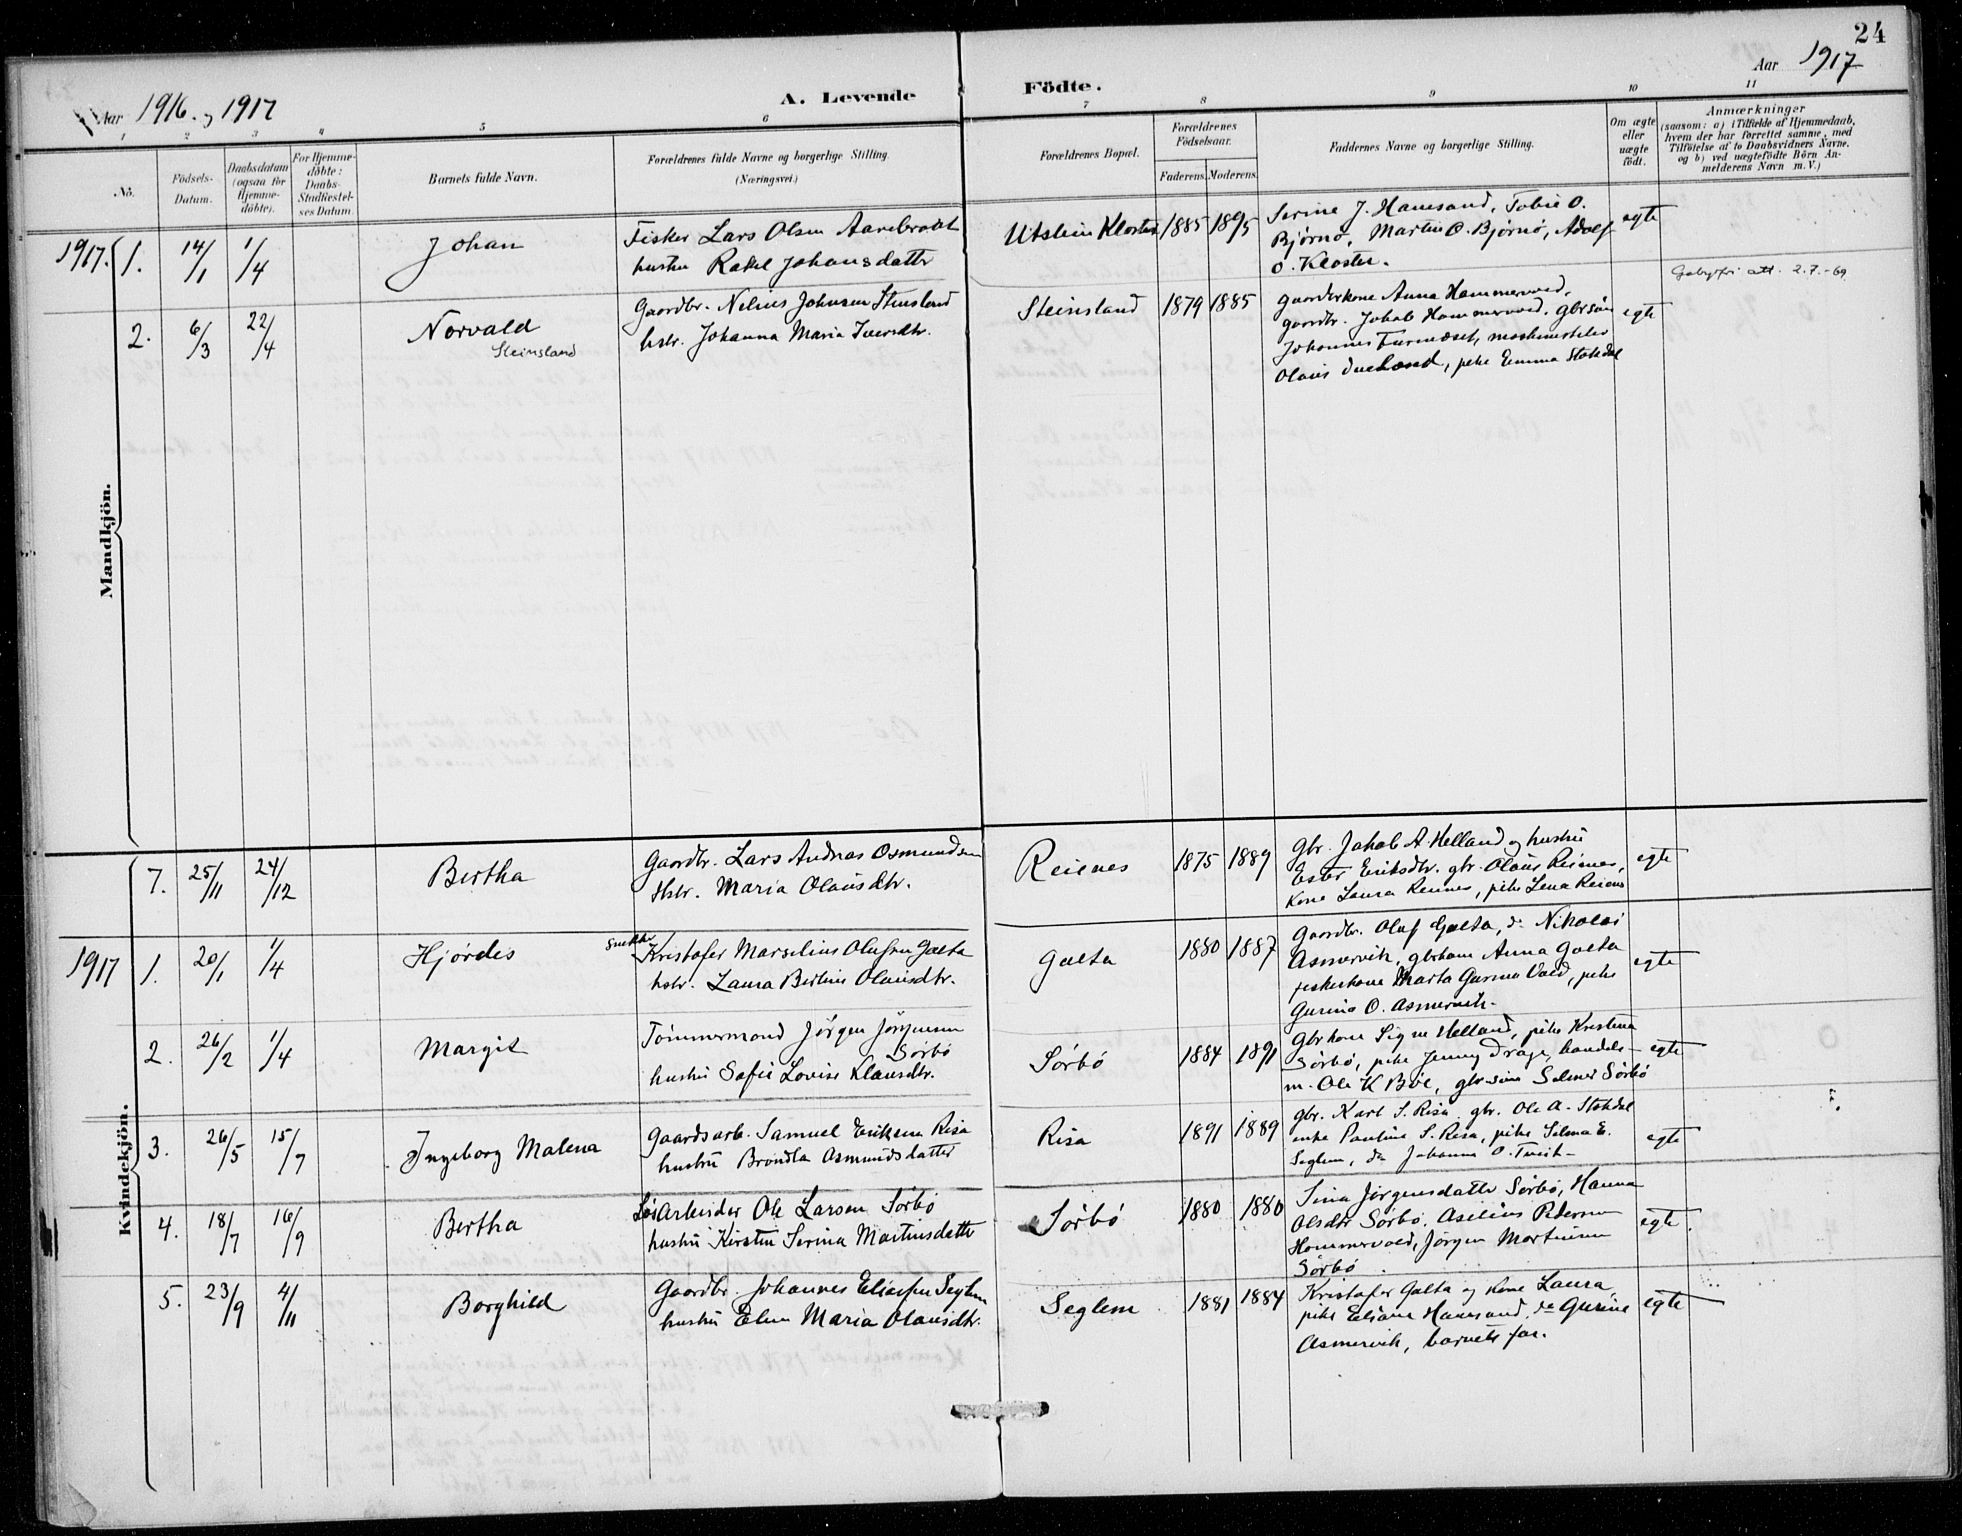 24
Aar 1916 og 1917
A. Levende
Födte.
Aar 1917
1 2 3 4 5 6 7 8 9 10 11
No.
Födsels-
Datum.
Daabsdatum
(ogsaa for
Hjemme-
döbte).
For Hjemme-
döbte:
Daabs-
Stadfæstel-
ses Datum
Barnets fulde Navn.
Forældrenes fulde Navne og borgerlige Stilling.
(Næringsvei.)
Forældrenes Bopæl.
Forældrenes
Födselsaar.
Faderens. Moderens.
Faddernes Navne og borgerlige Stilling.
Om ægte
eller
uægte
födt.
Anmærkninger
(saasom: a) i Tilfælde af Hjemmedaab,
hvem der har forrettet samme, med
Tilföielse af to Daabsvidners Navne.
og b) ved uægtefödte Börn An-
melderens Navn m. V.)
Mandkjön.
1917. 1. 14/1 1/4
Johan
Fisker Lars Olsen
hustru Rakel Johansdatter
Utstein Kloster 1885 1895
Serine J. Hanesand, Tobie O.
Bjørnø, Martin O. Bjørnø, Adolf
O. Kloster.
egte
2. 6/3 22/4
Norvald
Steinsland
Gaardbr. Nelius Johnsen Steinsland
hstr. Johanna Maria Iversdtr.
Steinsland 1879 1885
Gaarderkone Anna Hammervold,
gaardbr. Jakob Hammervold, gbrsøn
Johannes
Olaus, pike Emma Stokdal
egte
att. 2.7.-69
Kvindekjön.
7. 25/11 24/12
Bertha
Gaardbr. Lars Andreas Osmundsen
Hstr. Maria Olausdtr.
Reienes 1875 1889
Gbr. Jakob A Helland og hustru
Ester Eriksdtr. gbr. Olaus Reienes,
Kone Laura Reienes, pike Lena Reienes
egte
1917 1. 20/1 1/4
Hjørdes
Snekker Kristofer Marselius Olufsen Galta
hstr. Laura Bertine Olausdtr.
Galta 1880 1887
Gaardbr. Oluf Galta, do Nikolai
Asmervik, gbrkone Anna Galta
fiskerkone Marta Gurine Vold, pike
Gurine O. Asmervik.
egte
2. 26/2 1/4
Margit
Tømmermand Jørgen Jørgensen
Sørbø
hustru Sofie Lovise Klausdtr.
Sørbø 1884 1891
Gbrkone Signe Helland, pike Kristina
Sørbø, pike Jenny Drage, handels-
m. Ole K Bøe, gbrsøn Selmer Sørbø
egte
3. 26/5 15/7
Ingeborg Malena
Gaardsarb. Samuel Eriksen Risa
hustru Brondla Osmundsdatter
Risa 1891 1889
gbr. Karl S. Risa. gbr. Ole A. Stokdal
enke Pauline S. Risa, pike Selma E.
Seglem, do Johanna O. Tveit-
egte
4. 18/7 16/9
Bertha
Løsarbeider Ole Larsen Sørbø
hustru Kirsten Serina Martinsdatter
Sørbø 1880 1880
Sina Jørgensdatter Sørbø, Hanna
Olsdtr Sørbø. Aselius Pedersen
Hammervold, Jørgen Martinsen
Sørbø.
egte.
5. 23/9 4/11
Borghild
Gaardbr. Johannes Eliassen Seglem
hustru Elen Maria Olausdtr.
Seglem 1881 1884
Kristofer Galta og kone Laura
pike Eliane Hanesand, do Gurine
Asmervik, barnets far.
egte